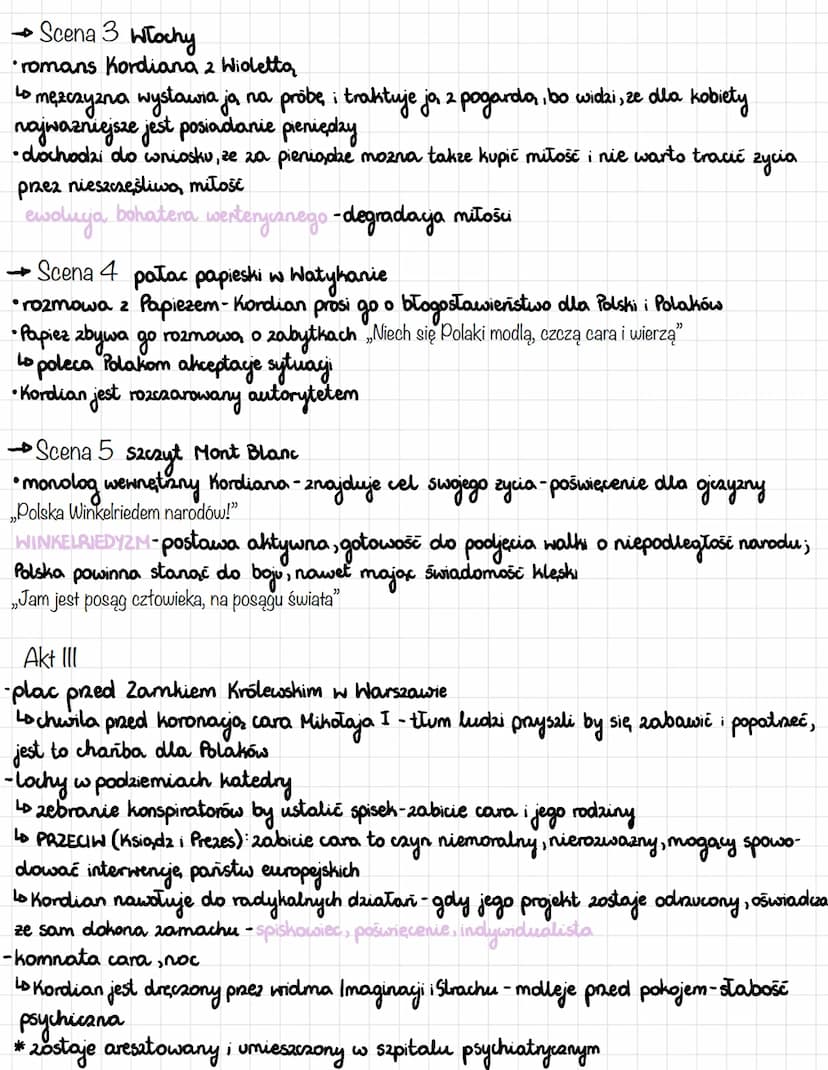 → Scena 3 Włochy
• romans Kordiana z Wiolettą
↳ mężczyzna wystawia ją na próbę i traktuje ją z pogardą, bo widzi, że dla kobiety
najważniejsze jest posiadanie pieniędzy
• dochodzi do wniosku, że za pieniądze można także kupić miłość i nie warto tracić życia
przez nieszczęśliwą miłość
ewolucja bohatera werterycznego - degradacja miłości
→ Scena 4 pałac papieski w Watykanie
• rozmowa z Papieżem - Kordian prosi go o błogosławieństwo dla Polski i Polaków
• Papież zbywa go rozmową o zabytkach „Niech się Polaki modlą, czczą cara i wierzą”
↳ poleca Polakom akceptację sytuacji
• Kordian jest rozczarowany autorytetem
→ Scena 5 szczyt Mont Blanc
• monolog wewnętrzny Kordiana - znajduje cel swojego życia - poświęcenie dla ojczyzny
„Polska Winkelriedem narodów!”
WINKELRIEDYZM - postawa aktywna, gotowość do podjęcia walki o niepodległość narodu;
Polska powinna stanąć do boju, nawet mając świadomość klęski
„Jam jest posąg człowieka, na posągu świata”
Akt III
- plac przed Zamkiem Królewskim w Warszawie
↳ chwila przed koronacją cara Mikołaja I - tłum ludzi przyszli by się zabawić i popatrzeć,
jest to chańba dla Polaków
- lochy w podziemiach katedry
↳ zebranie konspiratorów by ustalić spisek - zabicie cara i jego rodziny
↳ PRZECIW (Ksiądz i Prezes): zabicie cara to czyn niemoralny, nierozważny, mogący spowo-
dować interwencję państw europejskich
↳ Kordian nawołuje do radykalnych działań - gdy jego projekt zostaje odrzucony, oświadcza
że sam dokona zamachu - spiskowiec, poświęcenie, indywidualista
- komnata cara, noc
↳ Kordian jest dręczony przez widma Imaginacji i Strachu - mdleje przed pokojem - słabość
psychiczna
* zostaje aresztowany i umieszczony w szpitalu psychiatrycznym